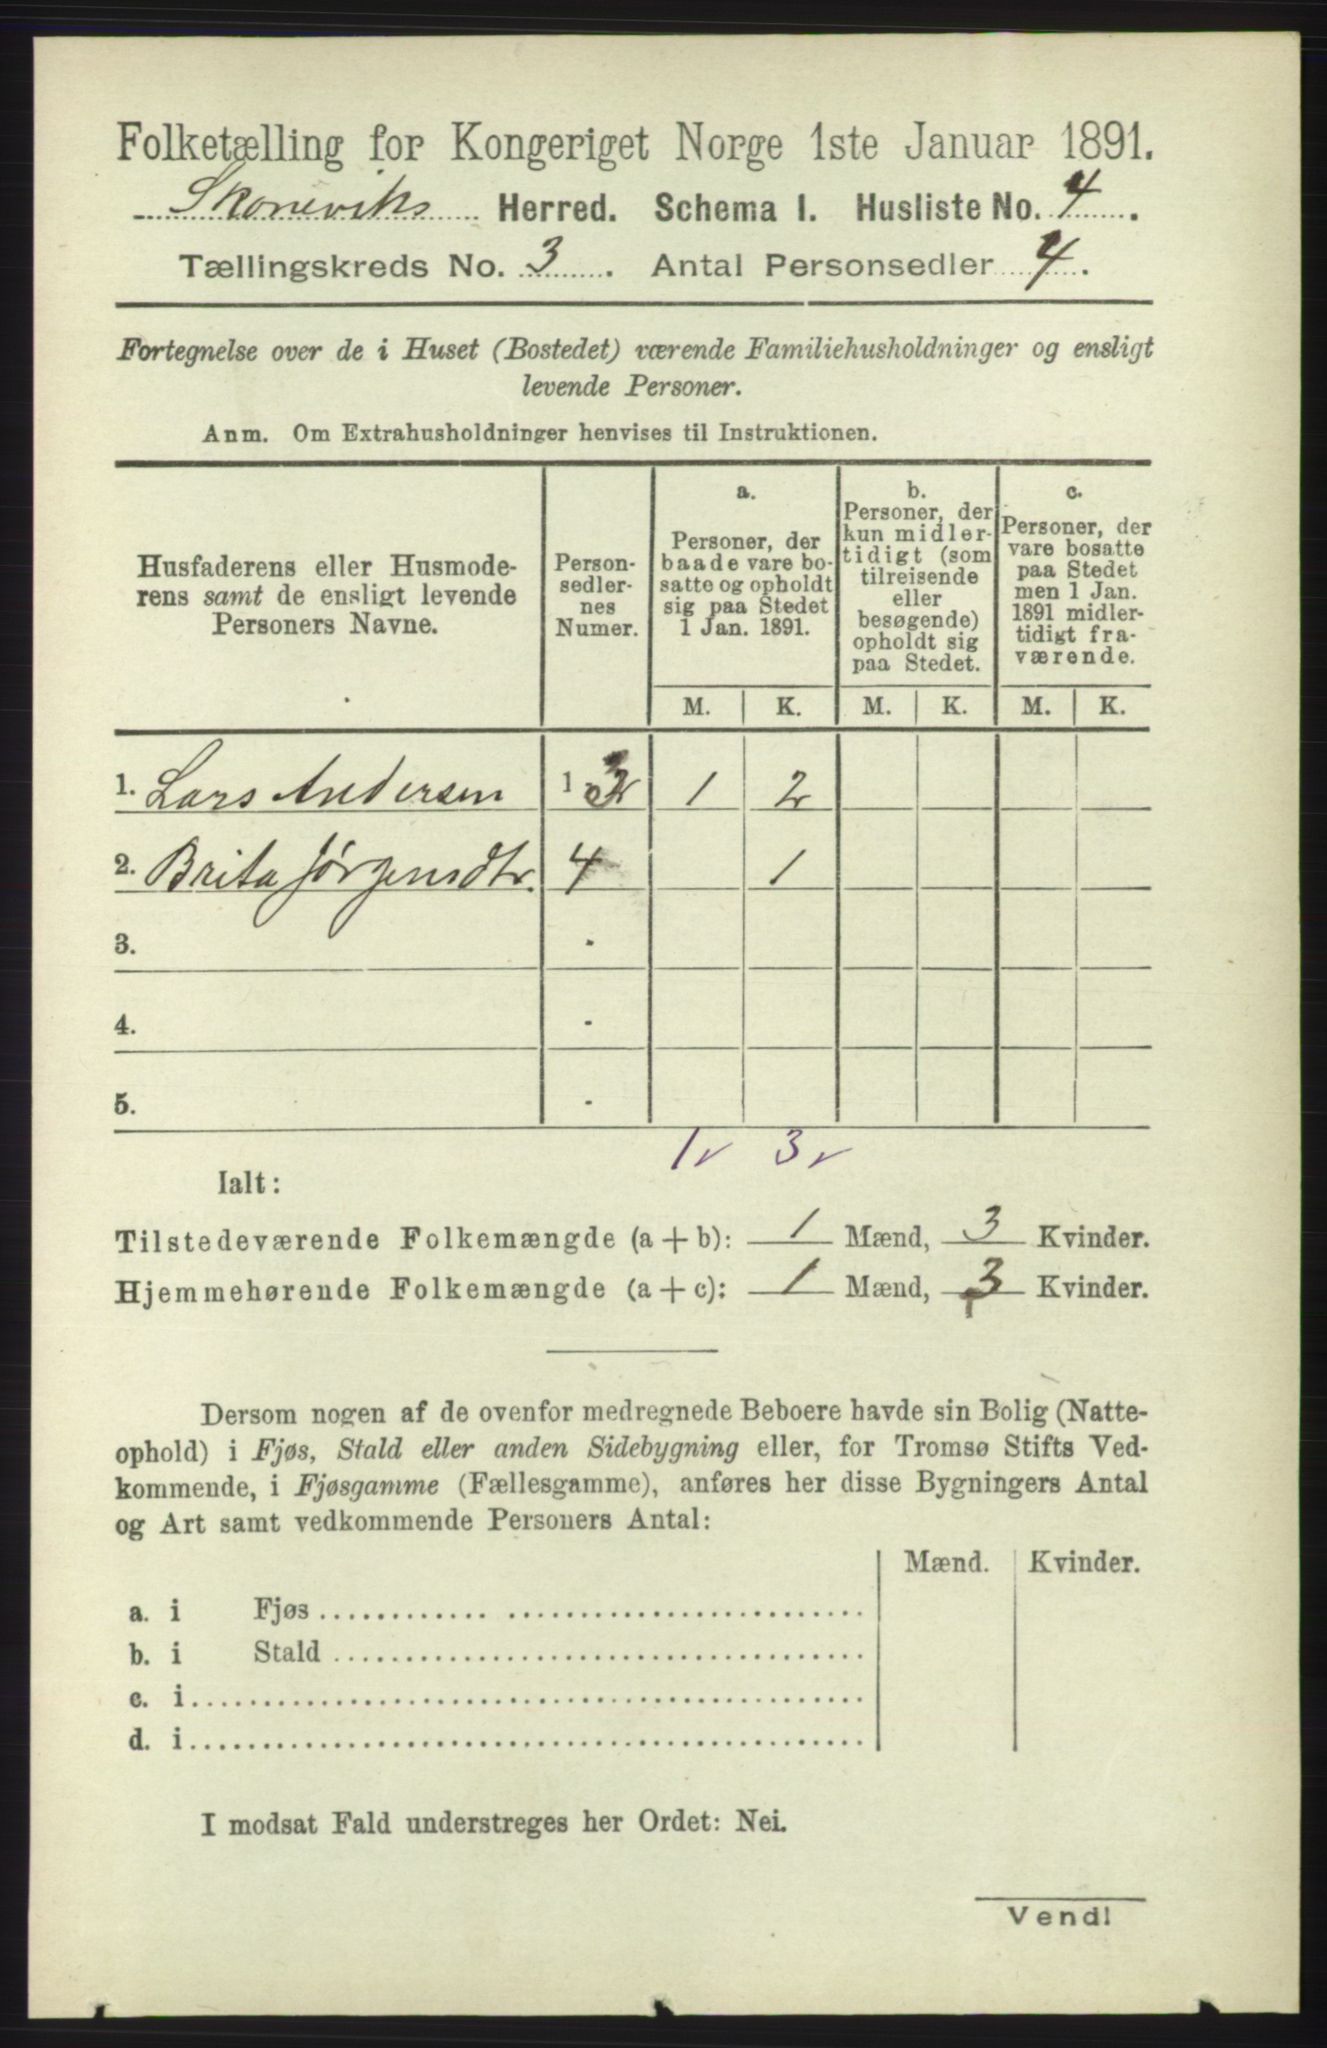 Folketælling for Kongeriget Norge 1ste Januar 1891.
Skoneviks Herred. Schema I. Husliste No. 4.
Tællingskreds No. 3. Antal Personsedler 4.
Fortegnelse over de i Huset (Bostedet) værende Familiehusholdninger og ensligt
levende Personer.
Anm. Om Extrahusholdninger henvises til Instruktionen.
Husfaderens eller Husmode-
rens samt de ensligt levende
Personers Navne.
Person-
sedler-
nes
Numer.
a.
Personer, der
baade vare bo-
satte og opholdt
sig paa Stedet
1 Jan. 1891.
b.
Personer, der
kun midler-
tidigt (som
tilreisende
eller
besøgende)
opholdt sig
paa Stedet.
c.
Personer, der
vare bosatte
paa Stedet
men 1 Jan.
1891 midler-
tidigt fra-
værende.
M. K. M. K. M. K.
1. Lars Andersen 1 - 3 1 2
2. Brita Jørgensdtr. 4 1
3. -
4. -
5. -
1 3
Ialt:
Tilstedeværende Folkemængde (a + b): 1 Mænd, 3 Kvinder.
Hjemmehørende Folkemængde (a + c): 1 Mænd, 3 Kvinder.
Dersom nogen af de ovenfor medregnede Beboere havde sin Bolig (Natte-
ophold) i Fjøs, Stald eller anden Sidebygning eller, for Tromsø Stifts Ved-
kommende, i Fjøsgamme (Fællesgamme), anføres her disse Bygningers Antal
og Art samt vedkommende Personers Antal:
Mænd. Kvinder.
a. i Fjøs
b. i Stald
c. i
d. i
I modsat Fald understreges her Ordet: Nei.
Vend!